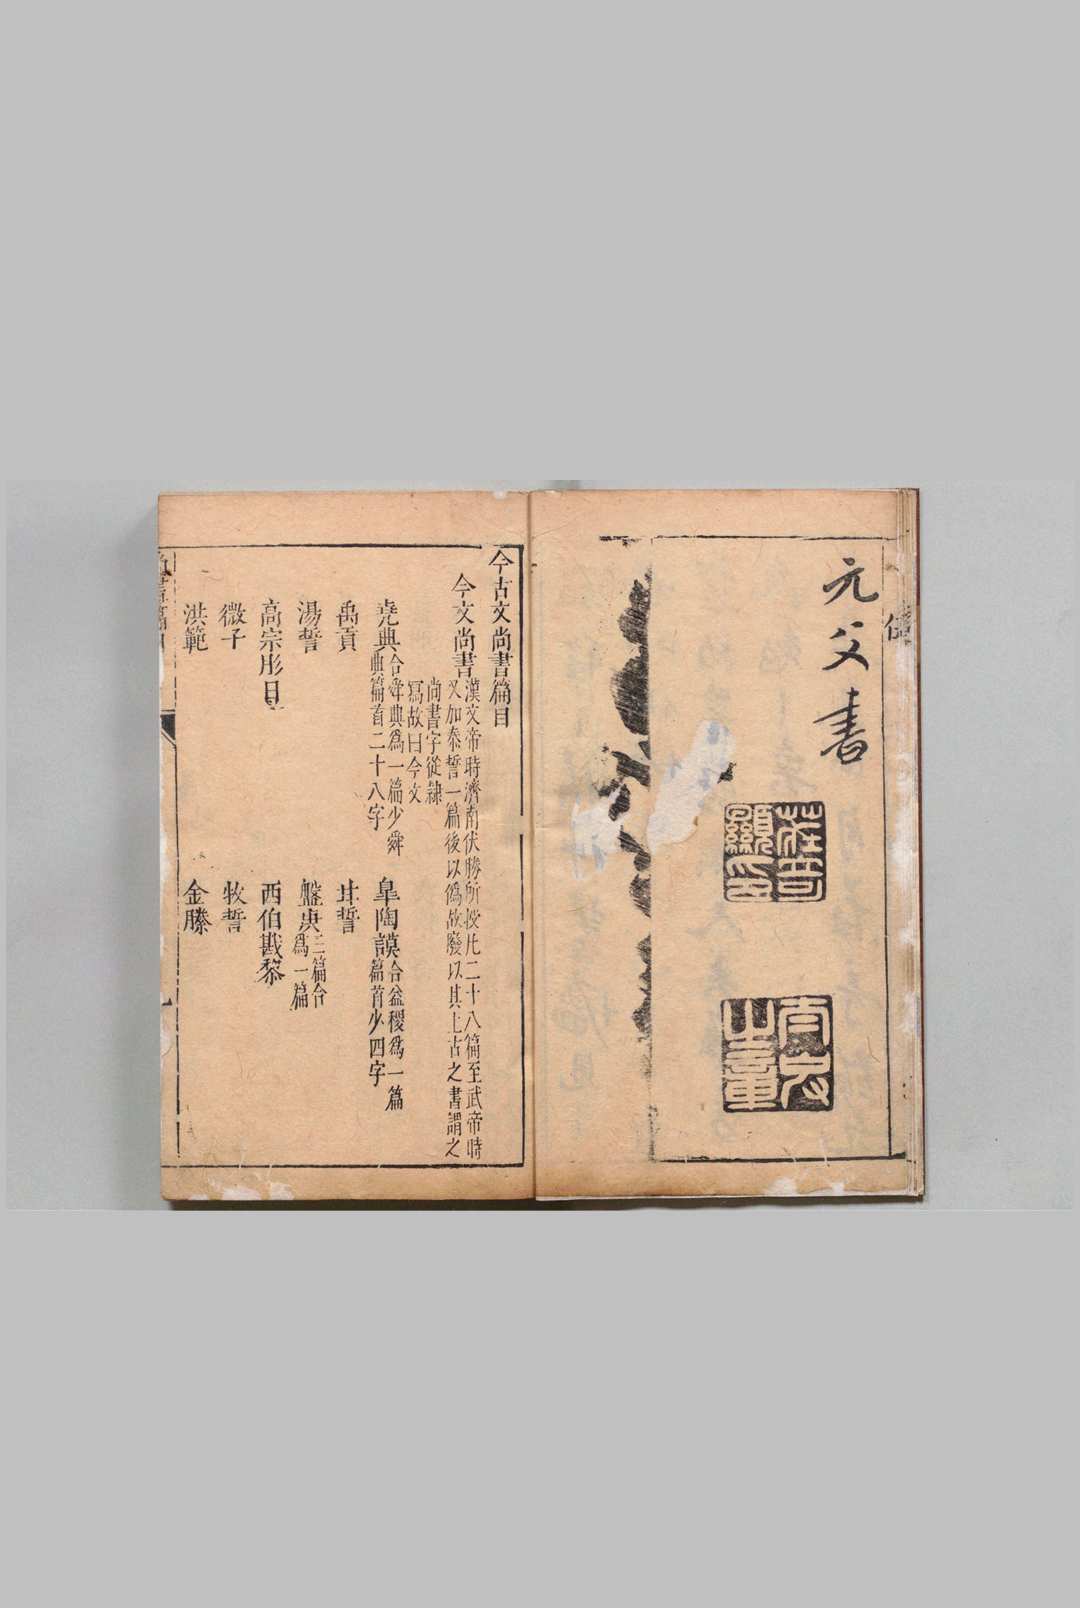 元父書
今古文尚書篇目
今文尚書漢文帝時濟南伏勝所授凡二十八篇至武帝時
又加泰誓一篇後以僞故廢以其上古之書謂之
尚書字從隸
寫故曰今文
堯典合舜典爲一篇少舜典篇首二十八字 皐陶謨合益稷爲一篇篇首少四字
禹貢 甘誓
湯誓 盤庚三篇合爲一篇
高宗肜日 西伯戡黎
微子 牧誓
洪範 金縢